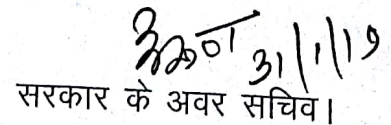 31/1/19
सरकार के अवर सचिव।